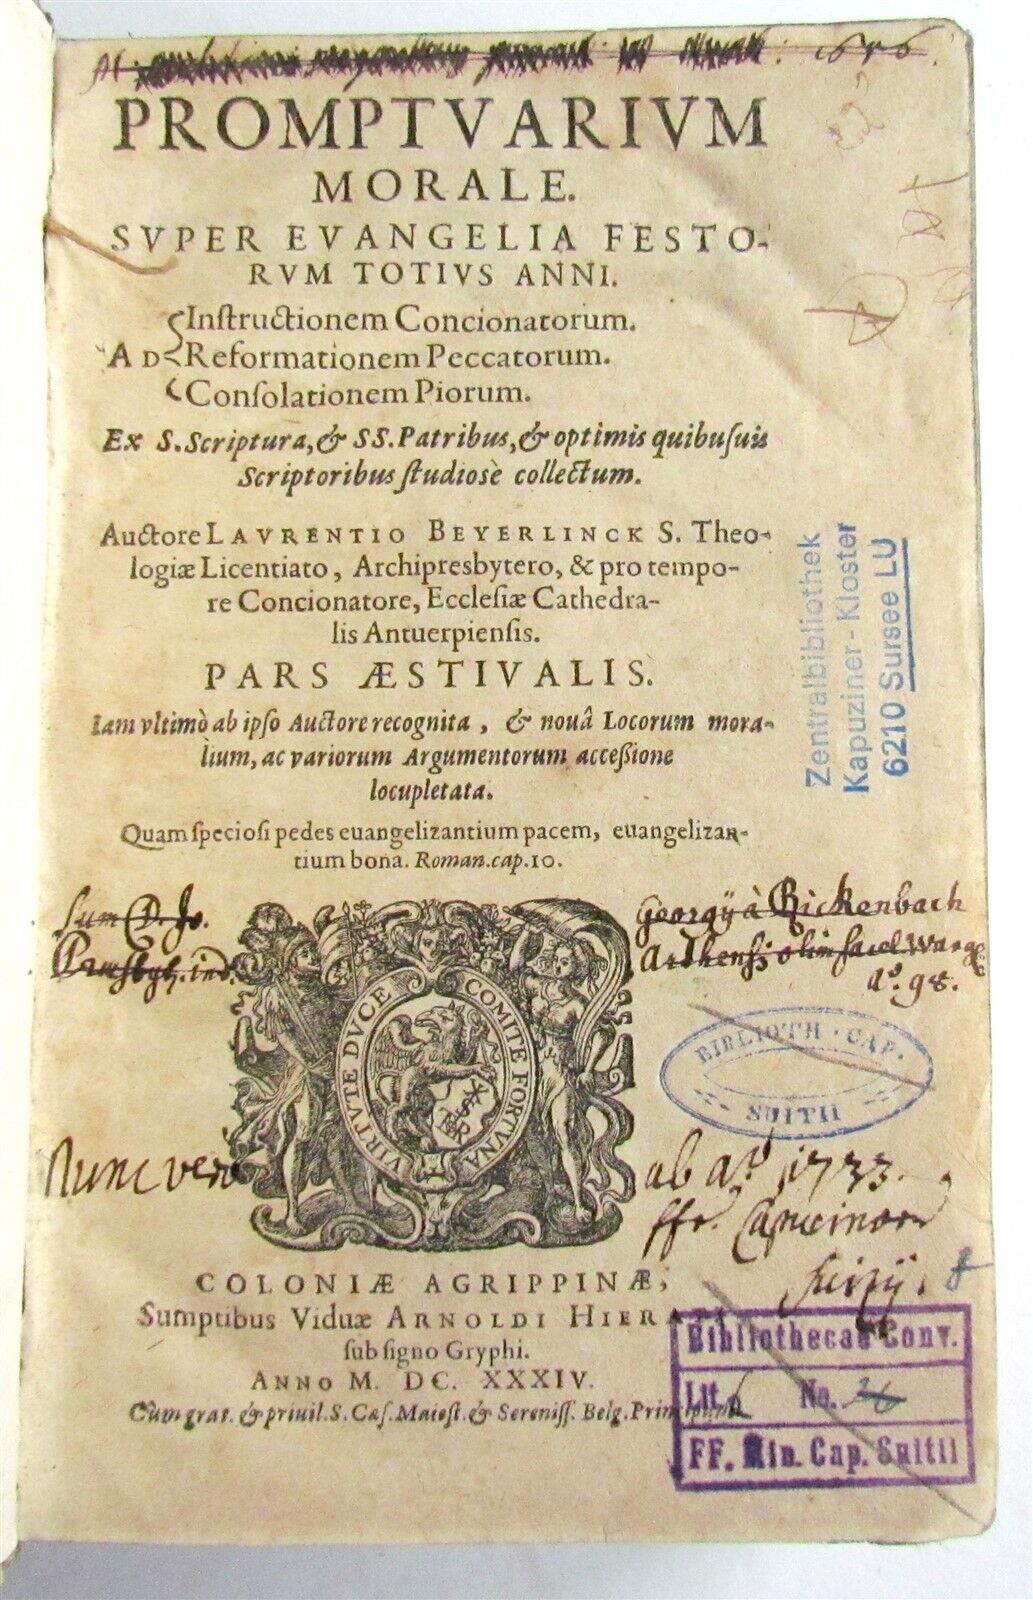 1656.
PROMPTVARIVM
MORALE.
SVPER EVANGELIA FESTO-
RVM TOTIVS ANNI.
Inſtructionem Concionatorum.
AD Reformationem Peccatorum.
Conſolationem Piorum.
Ex S. Scriptura, & SS. Patribus, & optimis quibuſuis
Scriptoribus ſtudiosè collectum.
Auctore LAVRENTIO BEYERLINCK S. Theo-
logiæ Licentiato, Archipresbytero, & pro tempo-
re Concionatore, Eccleſiæ Cathedra-
lis Antuerpienſis.
PARS ÆSTIVALIS.
Iam vltimò ab ipſo Auctore recognita, & nouâ Locorum mora-
lium, ac variorum Argumentorum acceßione
locupletata.
Quam ſpecioſi pedes euangelizantium pacem, euangelizan-
tium bona. Roman. cap. 10.
Zentralbibliothek
Kapuziner-Kloster
6210 Sursee LU
Sum D. Jo. Georgij à Rickenbach
Presbyt. ind. Arthensis olim
dº. 98.
VIRTVTE DVCE COMITE FORTVNA
BIBLIOTH. CAP.
SUITII
Nunc vero ab aº. 1733.
ffr. Capucinor
Suitij. 8
COLONIÆ AGRIPPINÆ,
Sumptibus Viduæ ARNOLDI HIERATI
ſub ſigno Gryphi.
ANNO M. DC. XXXIV.
Cum grat. & priuil. S. Cæſ. Maieſt. & Sereniſſ. Belg. Principum
Bibliothecae Conv.
Lit. No. 26
FF. Min. Cap. Suitii